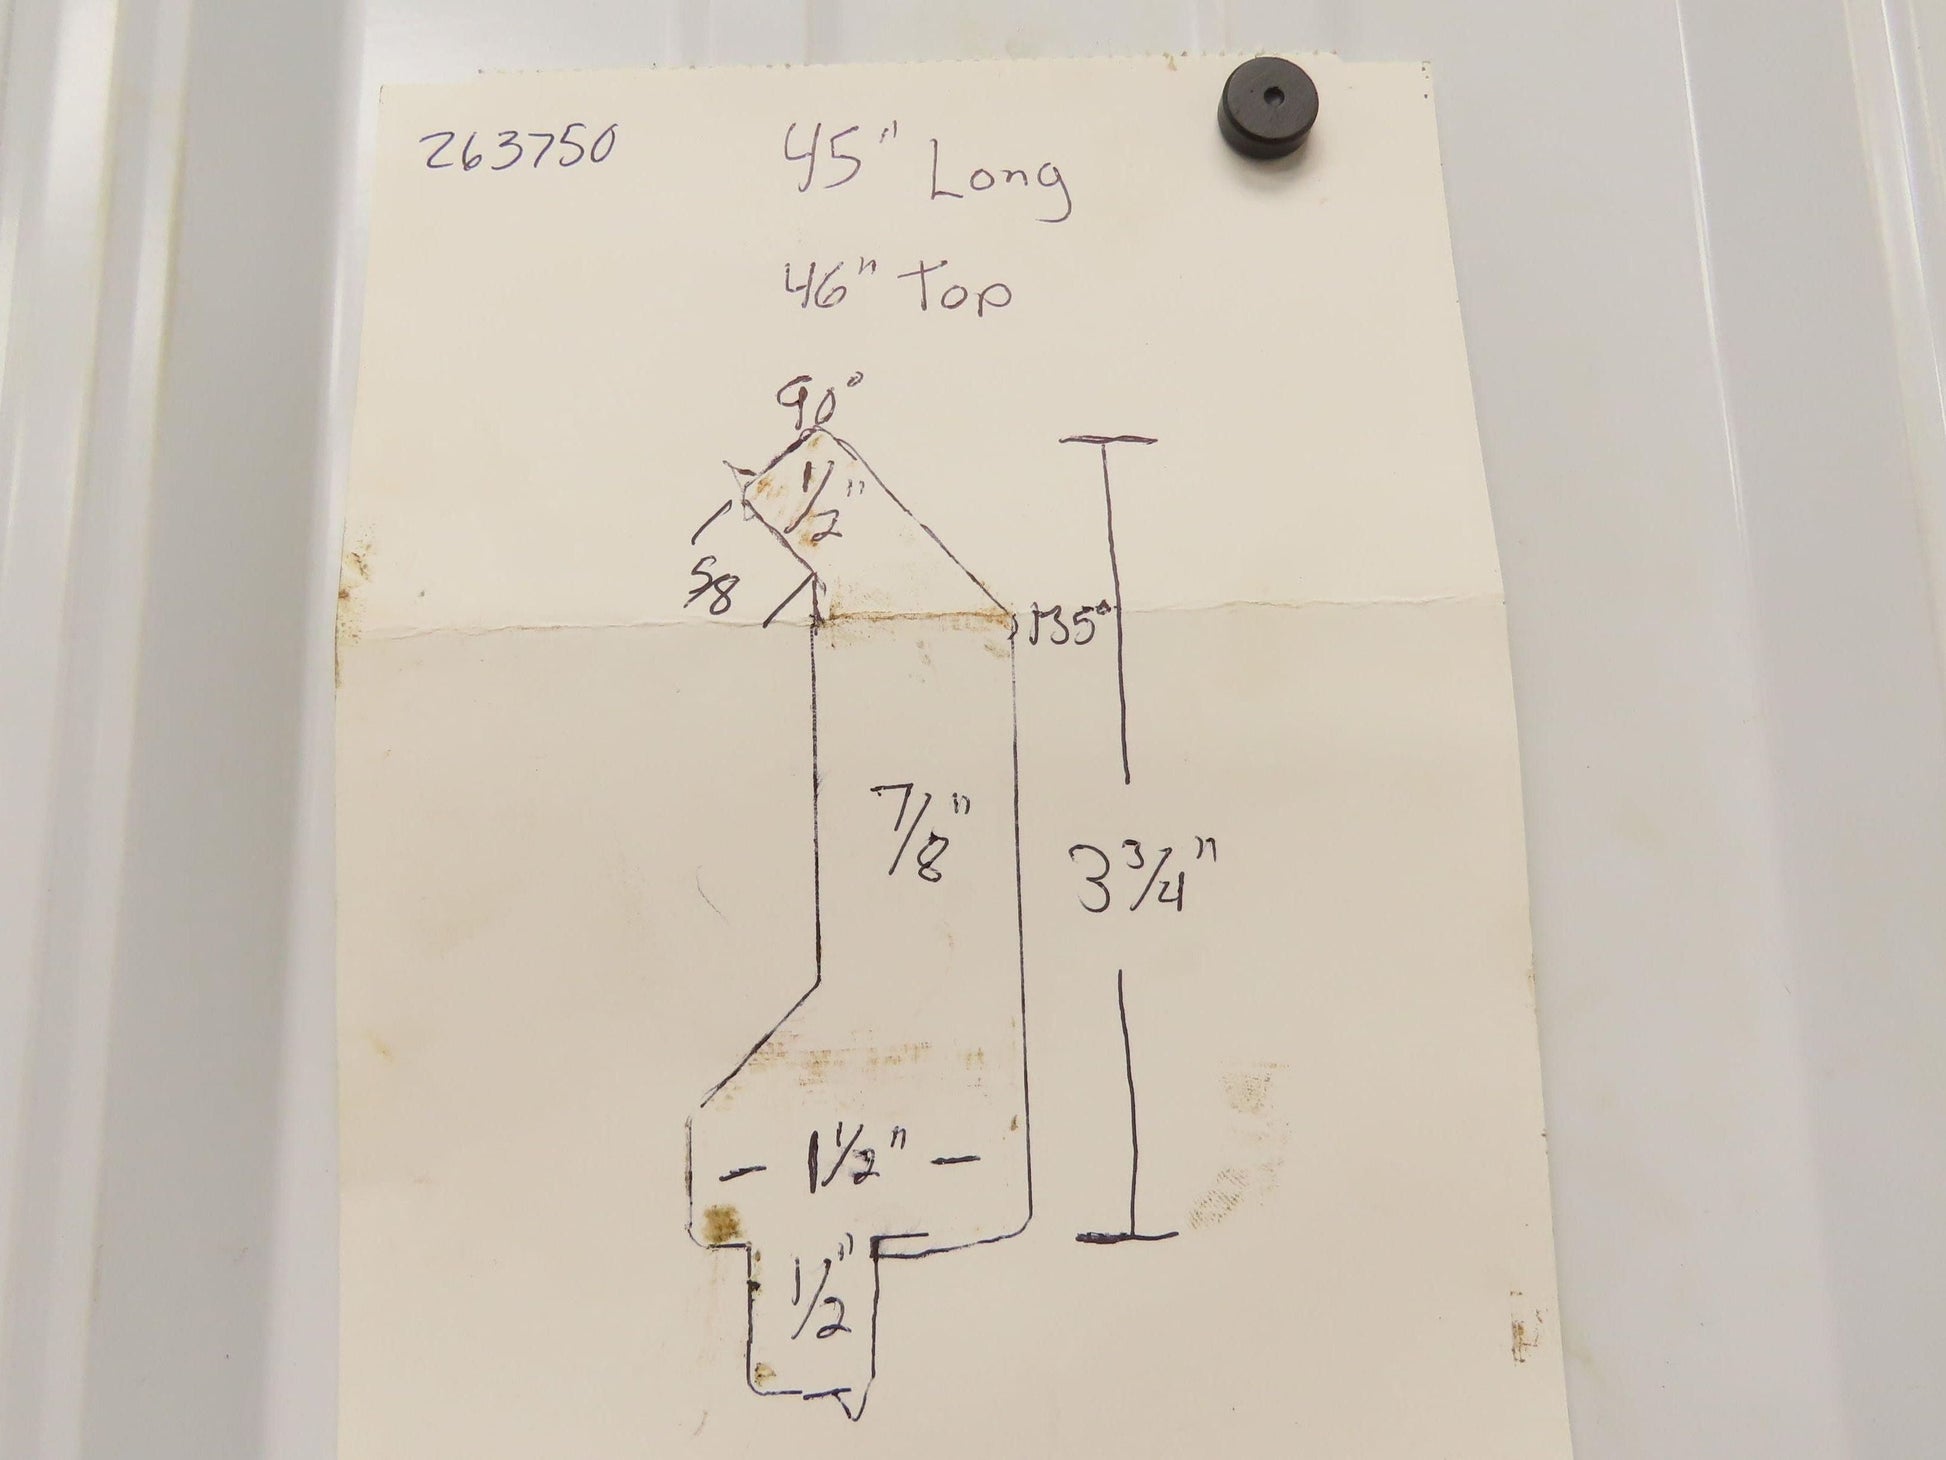 263750
45" Long
46" Top
90°
1/2"
5/8
135°
7/8"
3 3/4"
- 1 1/2" -
1/2"